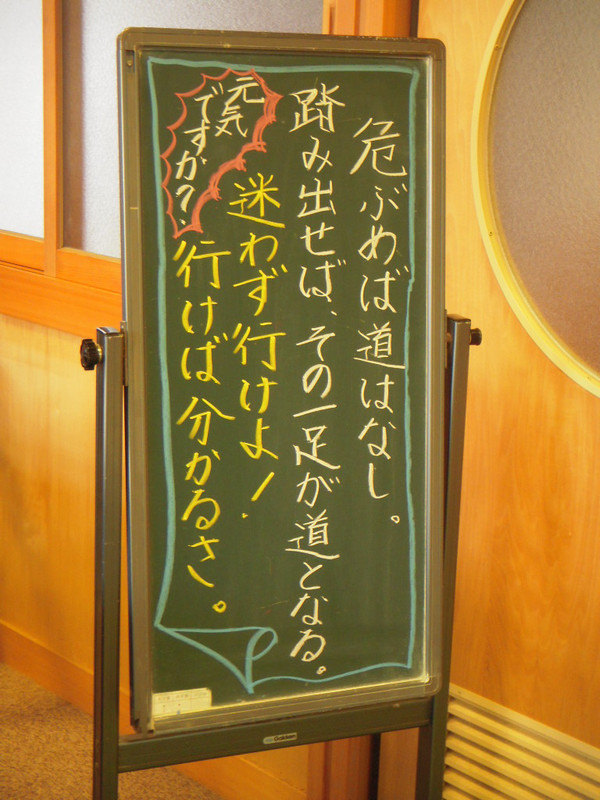 危ぶめば道はなし。
踏み出せば、その一足が道となる。
迷わず行けよ!
行けば分かるさ。
元気
ですか?